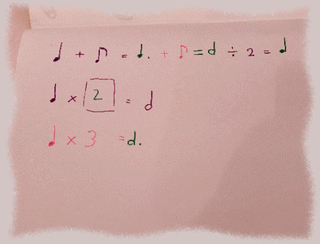 ♩ + ♪ = ♩. + ♪ = 𝅗𝅥 ÷ 2 = ♩
♩ × 2 = 𝅗𝅥
♩ × 3 = 𝅗𝅥.